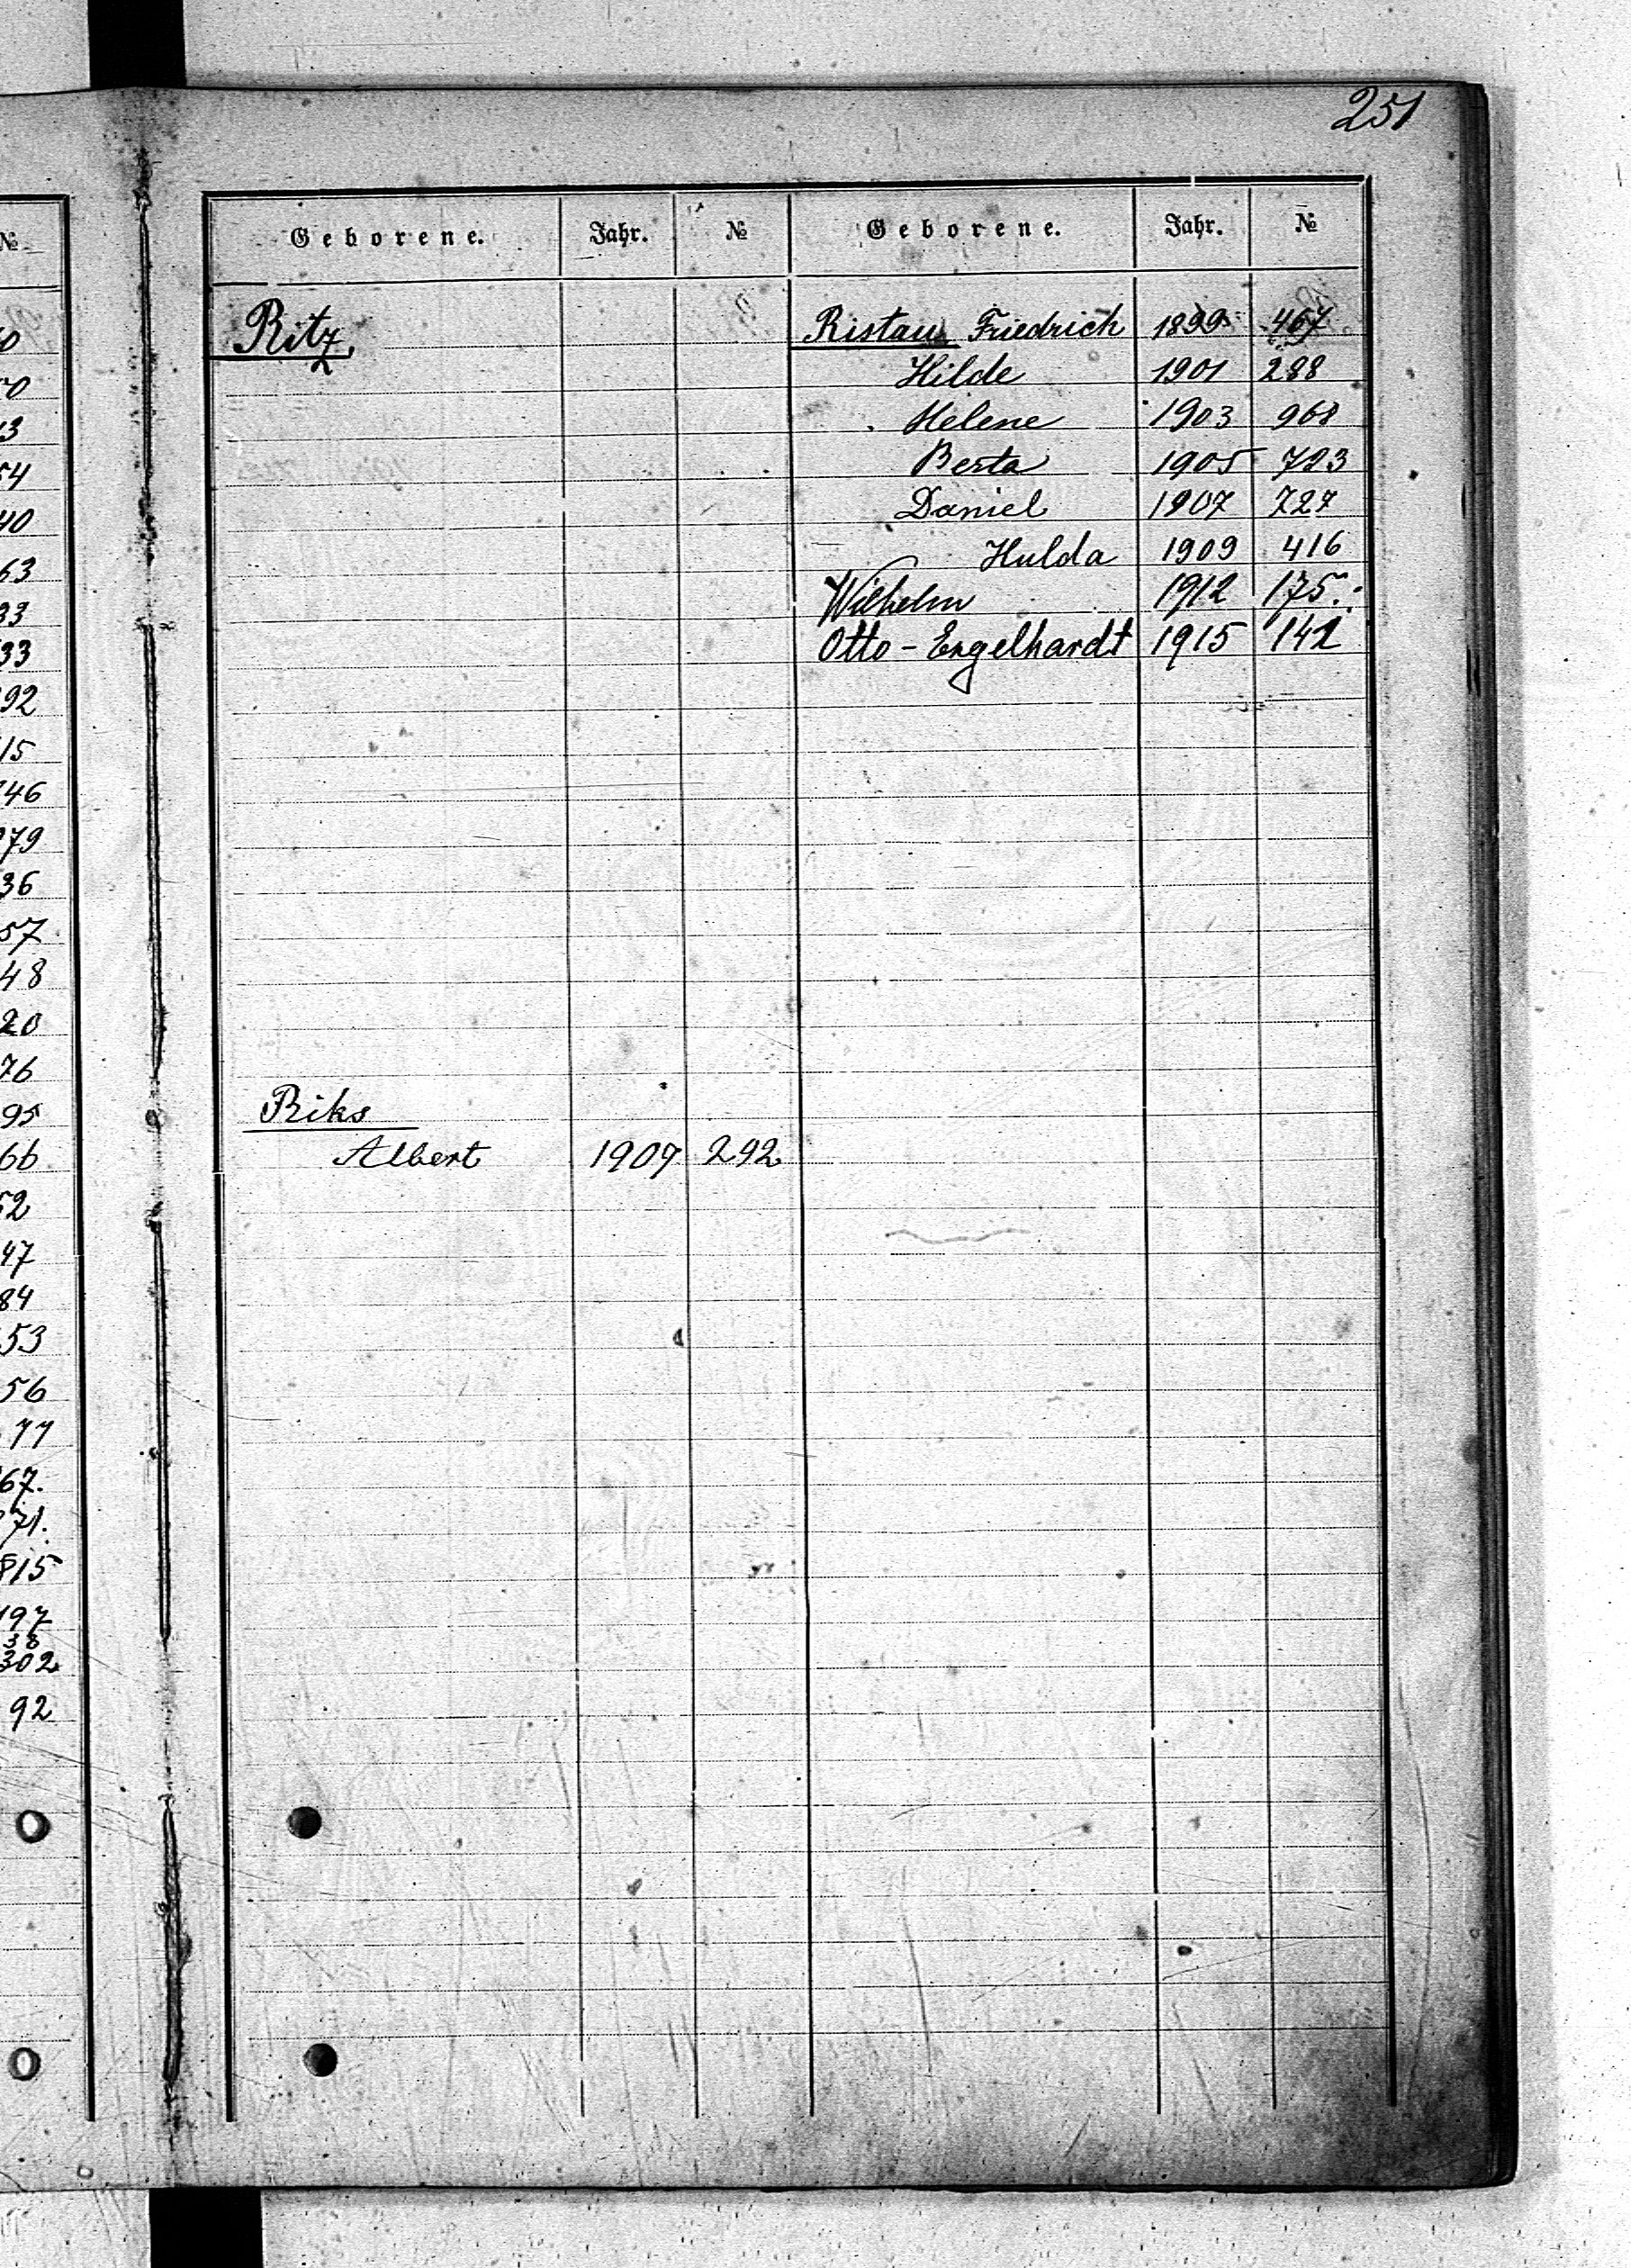 251
Geborene. Jahr. №
Ritz
Riks
Albert 1907 292
Geborene. Jahr. №
Ristau Friedrich 1899 467
Hilde 1901 288
Helene 1903 968
Berta 1905 723
Daniel 1907 727
Hulda 1909 416
Wilhelm 1912 175.
Otto - Engelhardt 1915 142
№
92
15
46
79
36
57
48
20
76
95
66
52
47
84
53
56
77
67.
71.
815
197
38
302
92